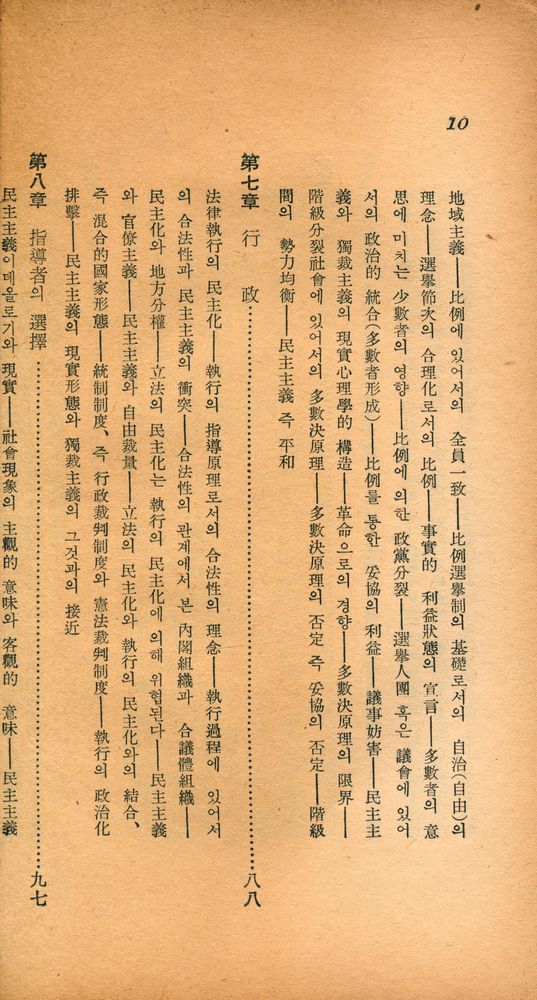 10
地域主義——比例에 있어서의 全員一致——比例選擧制의 基礎로서의 自治(自由)의
理念——選擧節次의 合理化로서의 比例——事實的 利益狀態의 宣言——多數者의 意
思에 미치는 少數者의 영향——比例에 의한 政黨分裂——選擧人團 혹은 議會에 있어
서의 政治的 統合(多數者形成)——比例를 통한 妥協의 利益——議事妨害——民主主
義와 獨裁主義의 現實心理學的 構造——革命으로의 경향——多數決原理의 限界——
階級分裂社會에 있어서의 多數決原理——多數決原理의 否定 즉 妥協의 否定——階級
間의 勢力均衡——民主主義 즉 平和
第七章 行 政……………………………………八八
法律執行의 民主化——執行의 指導原理로서의 合法性의 理念——執行過程에 있어서
의 合法性과 民主主義의 衝突——合法性의 관계에서 본 內閣組織과 合議體組織——
民主化와 地方分權——立法의 民主化는 執行의 民主化에 의해 위협된다——民主主義
와 官僚主義——民主主義와 自由裁量——立法의 民主化와 執行의 民主化와의 結合、
즉 混合的國家形態——統制制度、즉 行政裁判制度와 憲法裁判制度——執行의 政治化
排擊——民主主義의 現實形態와 獨裁主義의 그것과의 接近
第八章 指導者의 選擇……………………………………九七
民主主義이데올로기와 現實——社會現象의 主觀的 意味와 客觀的 意味——民主主義